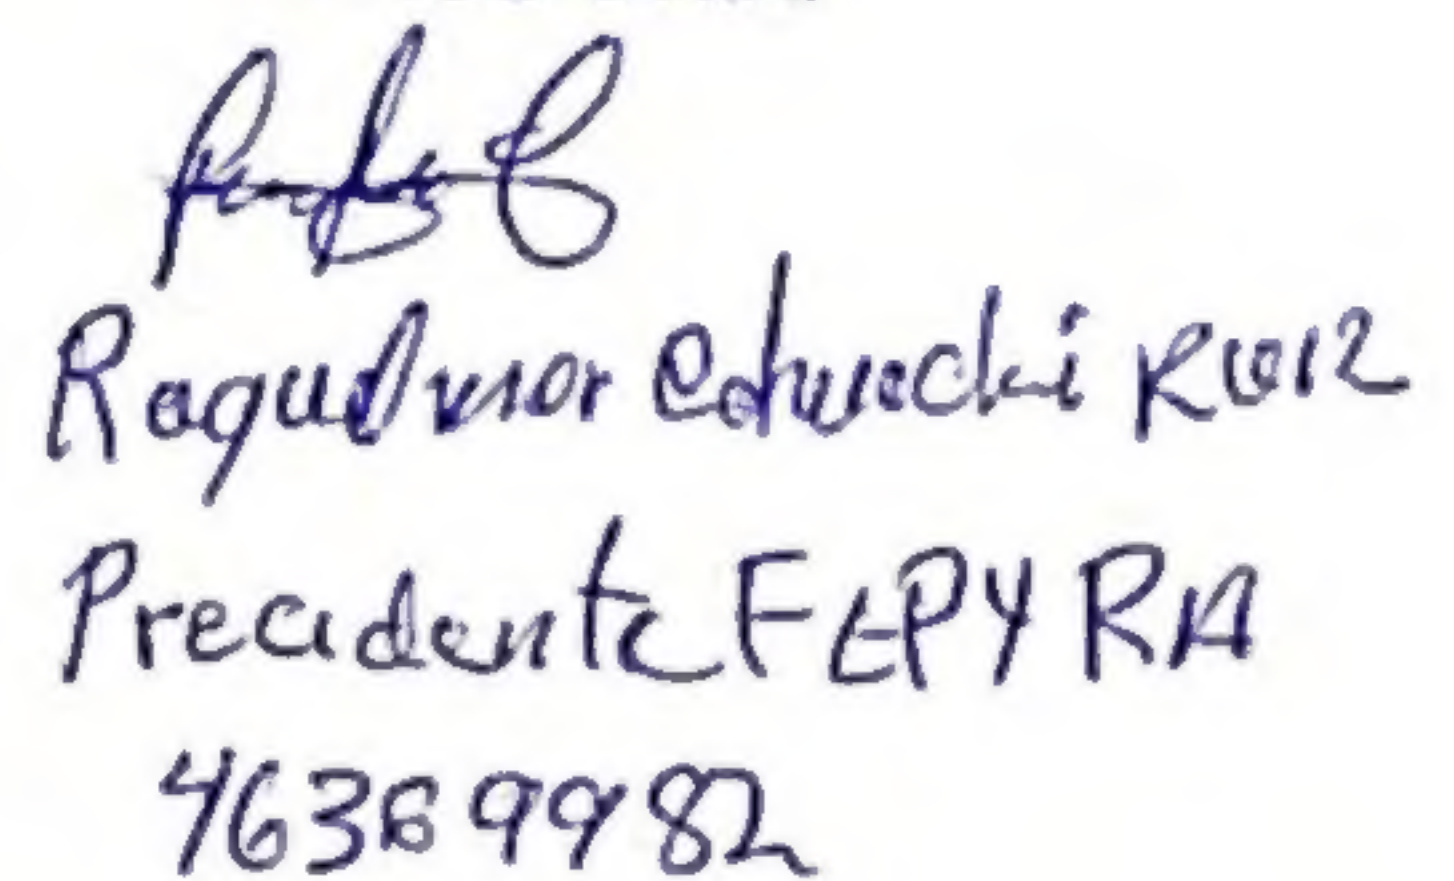 Roquelmor Edwuchi Ruiz
Precidente FEPYRA
46369982